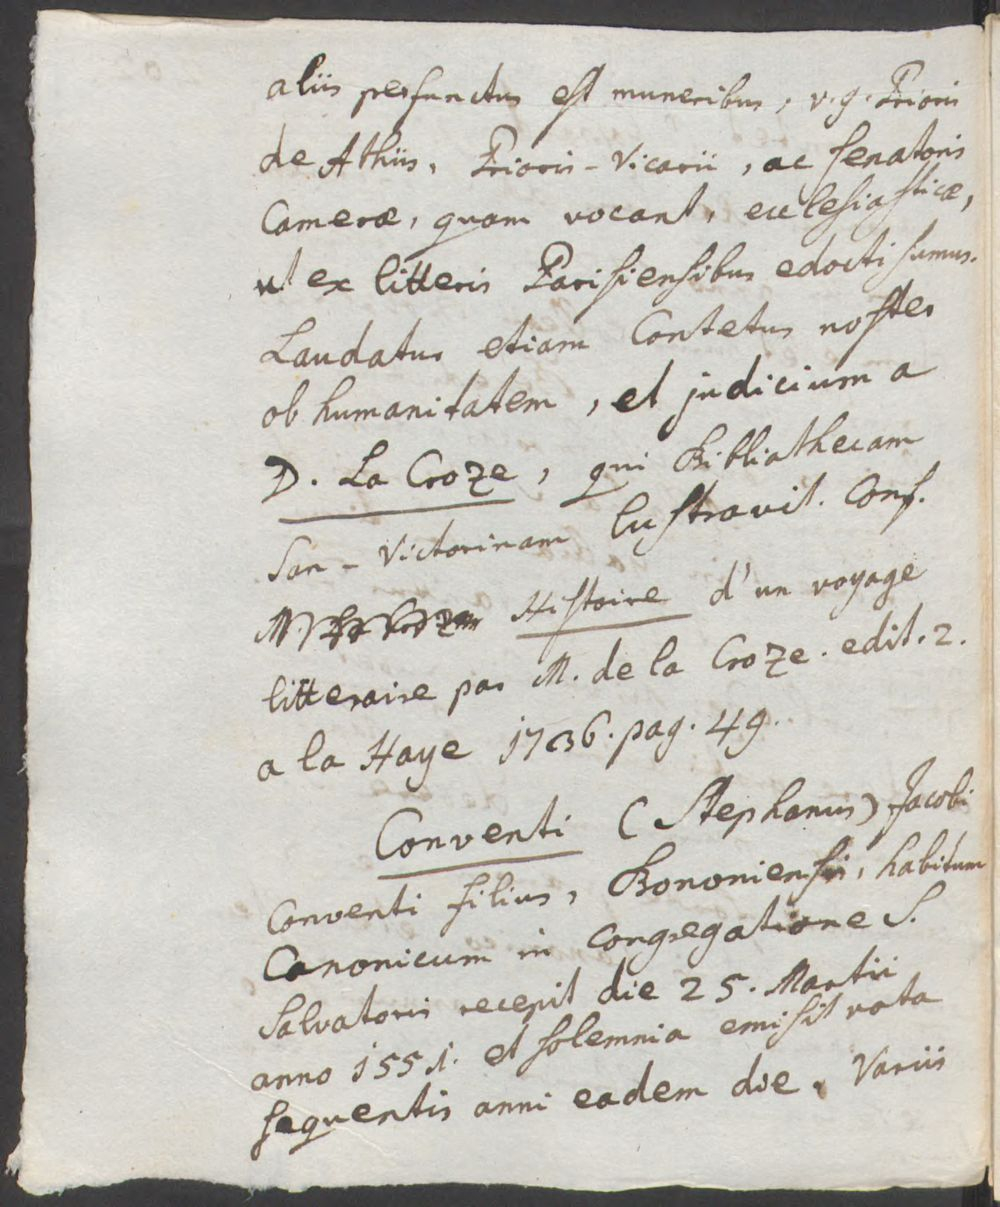 aliis perfunctus est muneribus, v.g. Prioris
de Athiis, Prioris-Vicarii, ac senatoris
Cameræ, quam vocant, ecclesiasticæ,
ut ex litteris Parisiensibus edocti sumus.
Laudatus etiam Contetus noster
ob humanitatem, et judicium a
D. La Croze, qui Bibliathecam
San-Victorinam lustravit. Conf.
Histoire d'un voyage
litteraire par M. de la Croze. edit. 2.
a la Haye 1736. pag. 49.
Conventi (Stephanus) Jacobi
Conventi filius, Bononiensis, habitum
Canonicum in congregatione S.
Salvatoris recepit die 25. Martii
anno 1551. et solemnia emisit vota
sequentis anni eadem die. Variis